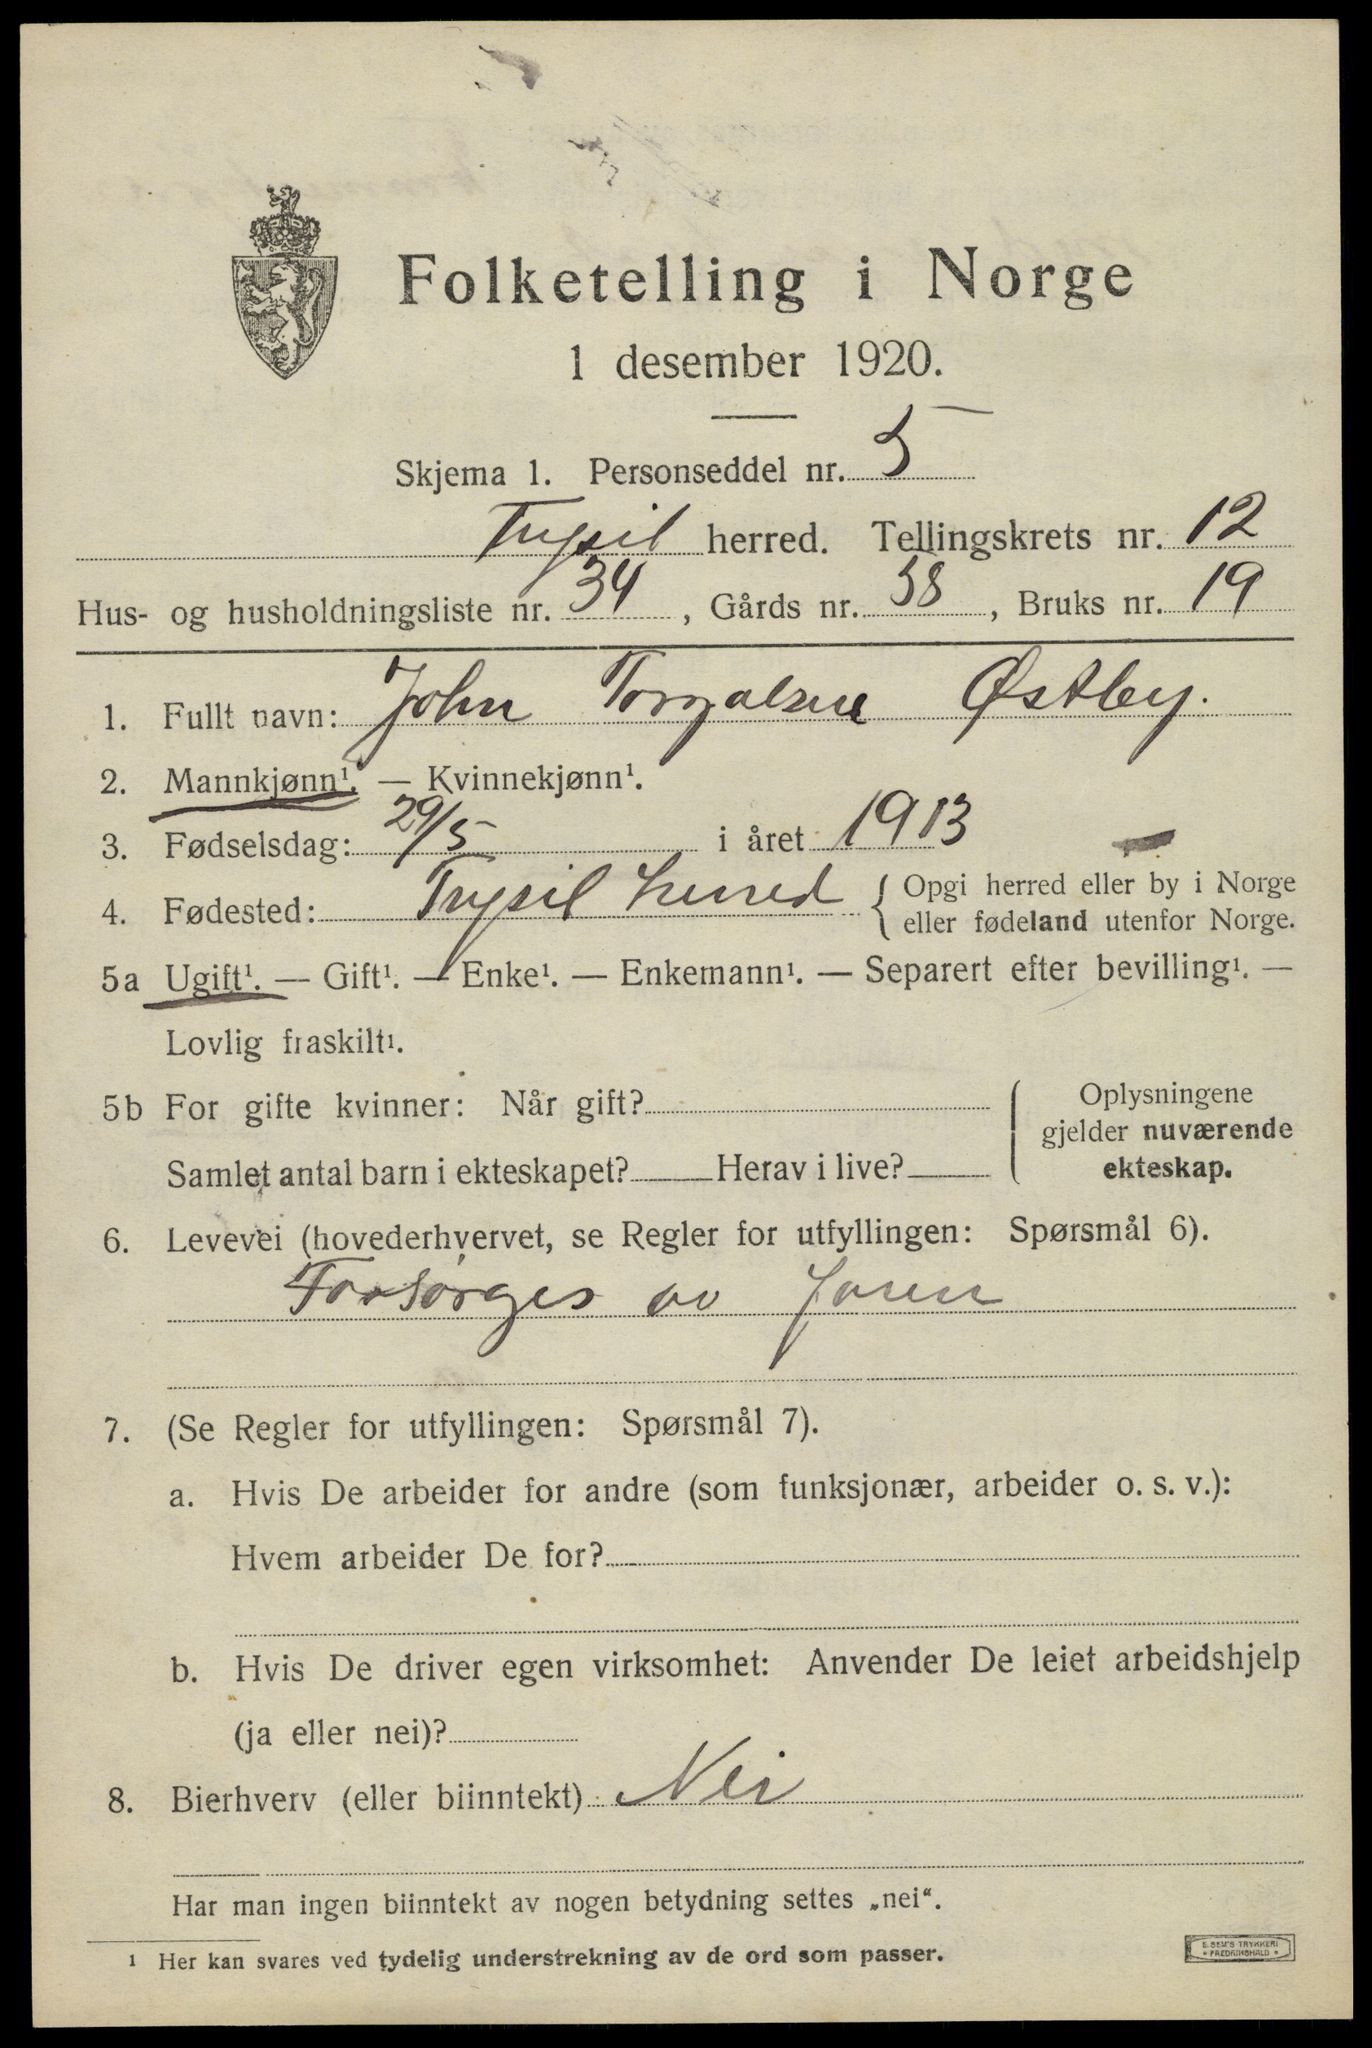 Folketelling i Norge
1 desember 1920.
Skjema 1. Personseddel nr. 5
Trysil herred. Tellingskrets nr. 12
Hus- og husholdningsliste nr. 34, Gårds nr. 58, Bruks nr. 19
1. Fullt navn: John Torgalsen Østby.
2. Mannkjønn¹. — Kvinnekjønn¹.
3. Fødselsdag: 29/5 i året 1913
4. Fødested: Trysil herred { Opgi herred eller by i Norge
eller fødeland utenfor Norge.
5a Ugift¹. — Gift¹. — Enke¹. — Enkemann¹. — Separert efter bevilling¹. —
Lovlig fraskilt¹.
5b For gifte kvinner: Når gift? { Oplysningene
gjelder nuværende
ekteskap.
Samlet antal barn i ekteskapet? Herav i live?
6. Levevei (hovederhvervet, se Regler for utfyllingen: Spørsmål 6).
Forsørges av
7. (Se Regler for utfyllingen: Spørsmål 7).
a. Hvis De arbeider for andre (som funksjonær, arbeider o. s. v.):
Hvem arbeider De for?
b. Hvis De driver egen virksomhet: Anvender De leiet arbeidshjelp
(ja eller nei)?
8. Bierhverv (eller biinntekt) Nei
Har man ingen biinntekt av nogen betydning settes „nei“.
¹ Her kan svares ved tydelig understrekning av de ord som passer.
E. SEM'S TRYKKERI
* FREDRIKSHALD *